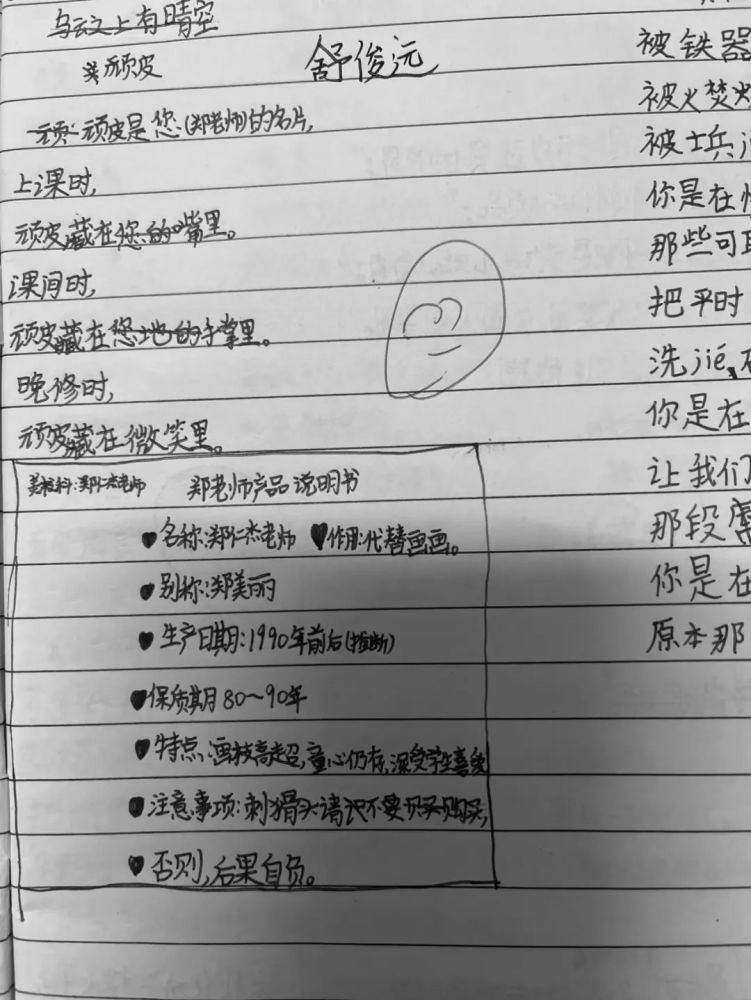 乌云之上有晴空
顽皮
舒俊沅
顽皮是您(郑老师)的名片,
上课时,
顽皮藏在您的嘴里。
课间时,
顽皮藏在您地的手掌里。
晚修时,
顽皮藏在微笑里。
郑仁杰老师 郑老师产品说明书
名称:郑仁杰老师 作用:代替画画。
别称:郑美丽
生产日期:1990年前后(推断)
保质期80~90年
特点:画技高超,童心仍存,深受学生喜爱
注意事项:刺猬头请不要购买,
否则,后果自负。
被铁器
被火焚
被士兵
你是在
那些可
把平时
洗jié,
你是在
让我们
那段
你是在
原本那